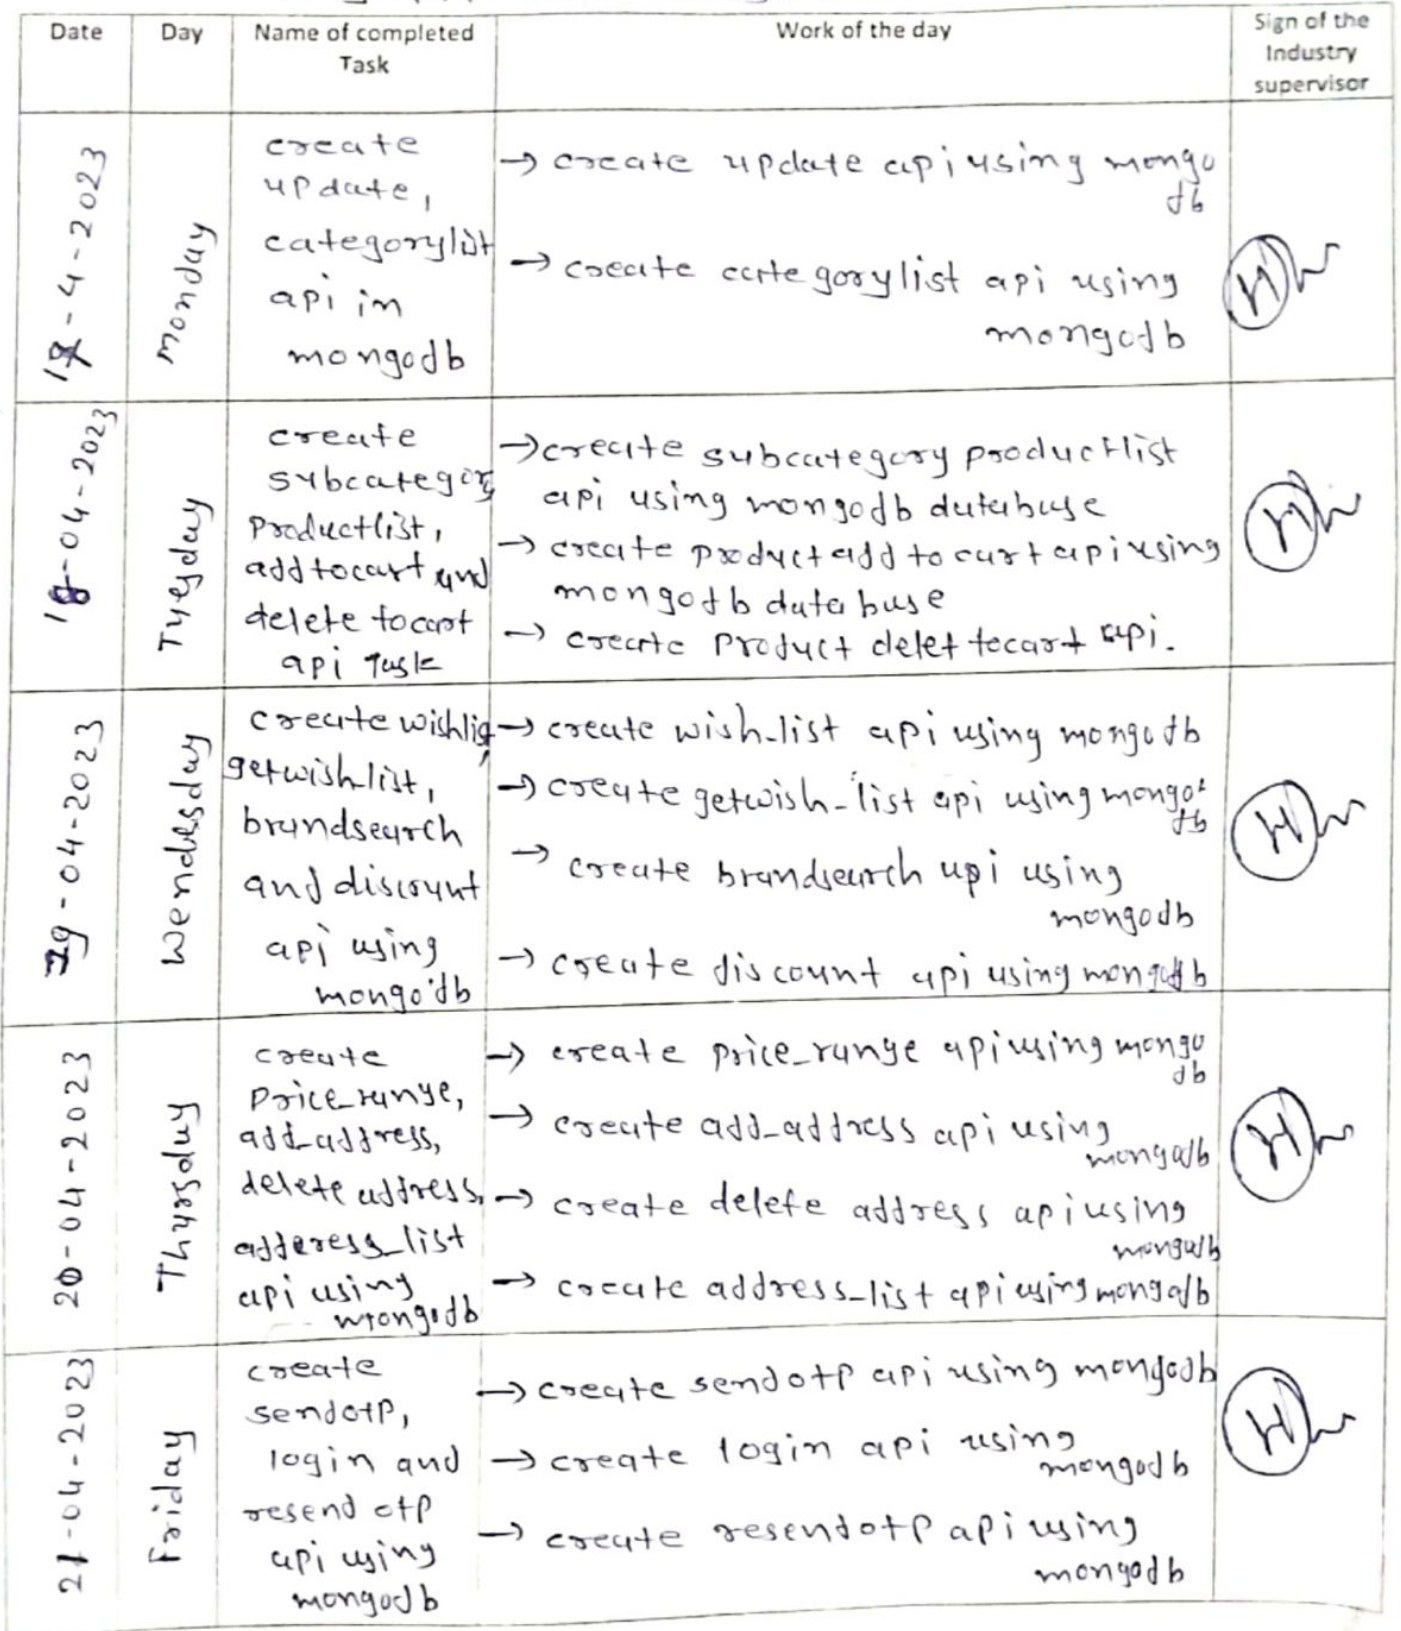 Date
Day
Name of completed
Task
Work of the day
Sign of the
Industry
supervisor
17-4-2023
Monday
create
update,
categorylist
api in
mongodb
→ create update api using mongo
db
→ create categorylist api using
mongodb
18-04-2023
Tuesday
create
subcategory
productlist,
addtocart and
delete tocart
api Task
→ create subcategory productlist
api using mongodb database
→ create product add to cart api using
mongodb database
→ create Product delet tocart api.
19-04-2023
Wendesday
create wishlist,
getwishlist,
brandsearch
and discount
api using
mongodb
→ create wish-list api using mongodb
→ create getwish-list api using mongo
db
→ create brandsearch api using
mongodb
→ create discount api using mongodb
20-04-2023
Thursday
create
Price_range,
add_address,
delete address,
adderess_list
api using
mongodb
→ create price_range api using mongo
db
→ create add_address api using
mongodb
→ create delete address api using
mongodb
→ create address_list api using mongodb
21-04-2023
Friday
create
sendotp,
login and
resend otp
api using
mongodb
→ create sendotp api using mongodb
→ create login api using
mongodb
→ create resendotp api using
mongodb